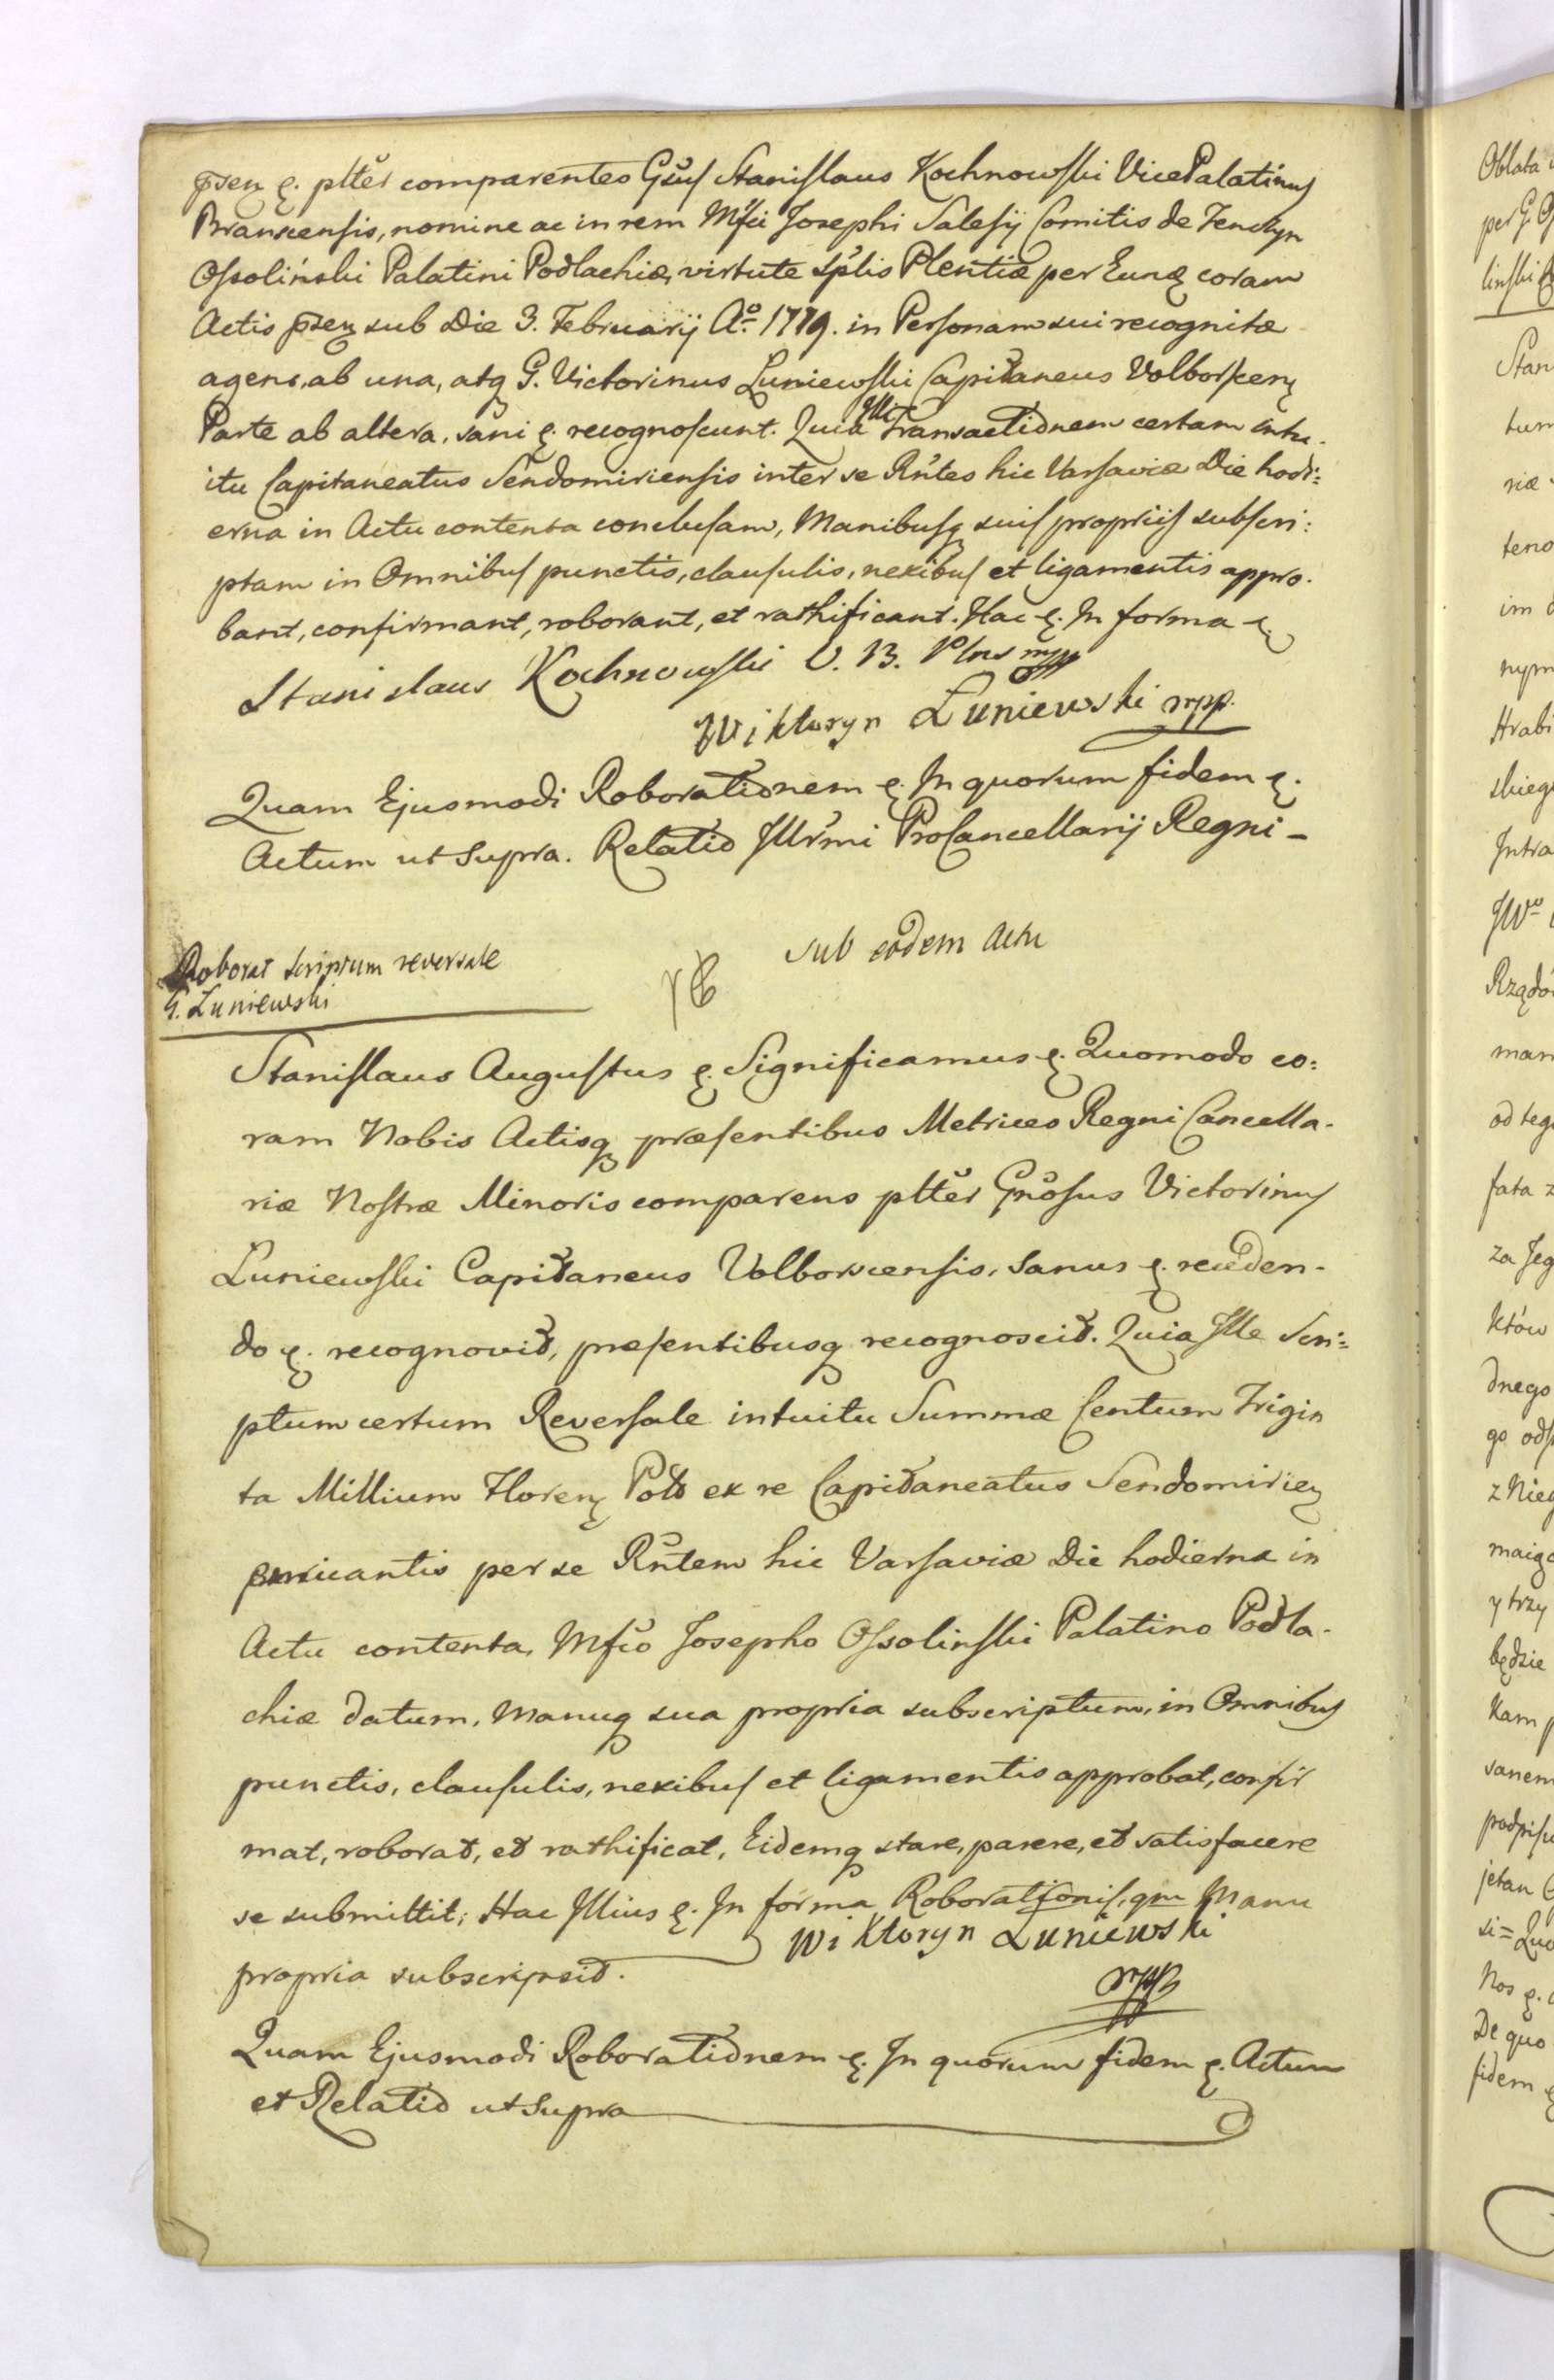 pñseñ ꝛ. pltẽr comparentes Gñsus Stanislaus Kochnowski Vice Palatinus
Branscensis, nomine ac in rem Mfci Josephi Salesij Comitis de Tenczyn
Ossoliński Palatini Podlachiæ, virtute Splis Plentiæ per Eunđ coram
Actis pñseñ sub Die 3. Februarij Aº 1779. in Personam sui recognitæ
agens, ab una, atq G. Victorinus Łuniewski Capitaneus Volborscenꝫ
Parte ab altera, sani ꝛ. recognoscunt. Quia Illi Transactionem certam intu-
itu Capitaneatus Sendomiriensis inter se Rñtes hic Varsaviæ Die hodi:
erna in Actu contenta conclusam, Manibusq suis propriis subscri:
ptam in Omnibus punctis, clausulis, nexibus et ligamentis appro-
bant, confirmant, roborant, et rathificant. Hac ꝛ. In forma ꝛ.
Stanislaus Kochnowski V. B. Plnus mpp
Wiktoryn Łuniewski mpp.
Quam Ejusmodi Roborationem ꝛ. In quorum fidem ꝛ.
Actum ut Supra. Relatio Illr̃mi ProCancellarij Regni -
Roborat scriptum reversale
G. Łuniewski
sub eodem Actu
Stanislaus Augustus ꝛ. Significamus ꝛ. Quomodo co:
ram Nobis Actisq præsentibus Metrices Regni Cancella-
riæ Nostræ Minoris comparens pltẽr Gñosus Victorinus
Łuniewski Capitaneus Volborscensis, sanus ꝛ. receden-
do ꝛ. recognovit, præsentibusq recognoscit. Quia Ille Scri:
ptum certum Reversale intuitu Summæ Centum Trigin
ta Millium Florenꝫ Pol ex re Capitaneatus Sendomirieꝫ
enricantis per se Rñtem hic Varsaviæ Die hodierna in
Actu contenta, Mfco Josepho Ossolinski Palatino Podla-
chiæ datum, Manuq sua propria subscriptum, in Omnibus
punctis, clausulis, nexibus et ligamentis approbat, confir
mat, roborat, et rathificat, Eidemq stare, parere, et satisfacere
se submittit; Hac Illius ꝛ. In forma Roborationis, qm Manu
propria subscripsit. Wiktoryn Łuniewski
mpp
Quam Ejusmodi Roborationem ꝛ. In quorum fidem ꝛ. Actum
et Relatio ut Supra